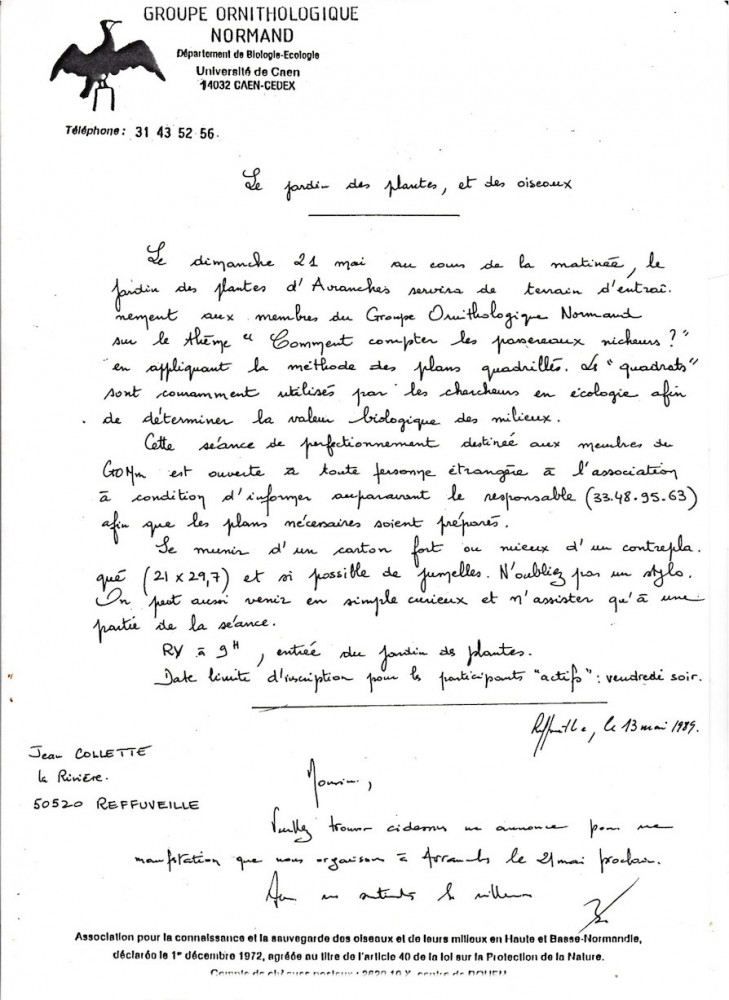 GROUPE ORNITHOLOGIQUE
NORMAND
Département de Biologie-Ecologie
Université de Caen
14032 CAEN-CEDEX
Téléphone : 31 43 52 56.
Le jardin des plantes, et des oiseaux
Le dimanche 21 mai au cours de la matinée, le
jardin des plantes d'Avranches servira de terrain d'entraî-
nement aux membres du Groupe Ornithologique Normand
sur le thème "Comment compter les passereaux nicheurs ?"
en appliquant la méthode des plans quadrillés. Les "quadrats"
sont couramment utilisés par les chercheurs en écologie afin
de déterminer la valeur biologique des milieux.
Cette séance de perfectionnement destinée aux membres du
GONm est ouverte à toute personne étrangère à l'association
à condition d'informer auparavant le responsable (33.48.95.63)
afin que les plans nécessaires soient préparés.
Se munir d'un carton fort ou mieux d'un contrepla-
qué (21 x 29,7) et si possible de jumelles. N'oubliez pas un stylo.
On peut aussi venir en simple curieux et n'assister qu'à une
partie de la séance.
RV à 9H, entrée du jardin des plantes.
Date limite d'inscription pour les participants "actifs" : vendredi soir.
Reffuveille, le 13 mai 1989.
Jean COLLETTE
la Rivière.
50520 REFFUVEILLE
Monsieur,
Veuillez trouver cidessus une annonce pour une
manifestation que nous organisons à Avranches le 21 mai prochain.
Association pour la connaissance et la sauvegarde des oiseaux et de leurs milieux en Haute et Basse-Normandie,
déclarée le 1er décembre 1972, agréée au titre de l'article 40 de la loi sur la Protection de la Nature.